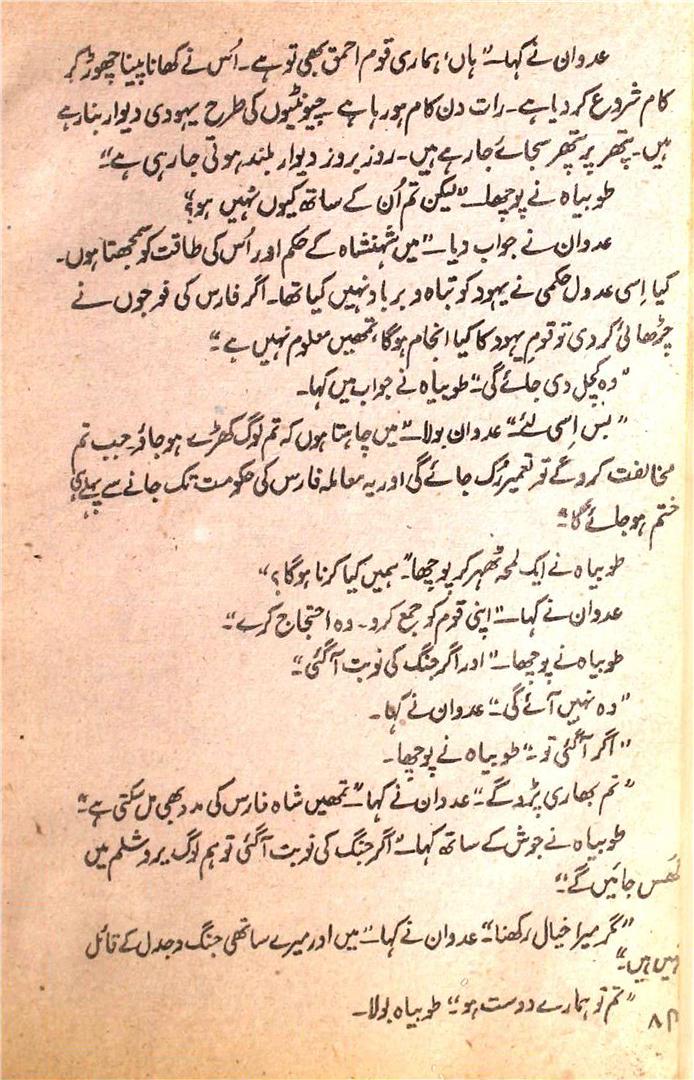 عدوان نے کہا۔ "ہاں، ہماری قوم احمق بھی تو ہے۔ اُس نے کھانا پینا چھوڑ کر
کام شروع کر دیا ہے۔ رات دن کام ہو رہا ہے۔ چیونٹیوں کی طرح یہودی دیوار بنا رہے
ہیں۔ پتھر پر پتھر سجائے جا رہے ہیں۔ روز بروز دیوار بلند ہوتی جا رہی ہے۔"
طوبیاہ نے پوچھا۔ "لیکن تم اُن کے ساتھ کیوں نہیں ہو؟"
عدوان نے جواب دیا۔ "میں شہنشاہ کے حکم اور اُس کی طاقت کو سمجھتا ہوں۔
کیا اِسی عدول حکمی نے یہود کو تباہ و برباد نہیں کیا تھا۔ اگر فارس کی فوجوں نے
چڑھائی کر دی تو قومِ یہود کا کیا انجام ہوگا، تمھیں معلوم نہیں ہے۔"
"وہ کچل دی جائے گی۔" طوبیاہ نے جواب میں کہا۔
"بس اِسی لئے" عدوان بولا۔ "میں چاہتا ہوں کہ تم لوگ کھڑے ہو جاؤ۔ جب تم
مخالفت کرو گے تو تعمیر رُک جائے گی اور یہ معاملہ فارس کی حکومت تک جانے سے پہلے ہی
ختم ہو جائے گا۔"
طوبیاہ نے ایک لمحہ ٹھہر کر پوچھا۔ "ہمیں کیا کرنا ہوگا؟"
عدوان نے کہا۔ "اپنی قوم کو جمع کرو۔ وہ احتجاج کرے۔"
طوبیاہ نے پوچھا۔ "اور اگر جنگ کی نوبت آ گئی۔"
"وہ نہیں آئے گی۔" عدوان نے کہا۔
"اگر آ گئی تو۔" طوبیاہ نے پوچھا۔
"تم بھاری پڑو گے۔" عدوان نے کہا۔ "تمھیں شاہ فارس کی مدد بھی مل سکتی ہے۔"
طوبیاہ نے جوش کے ساتھ کہا۔ "اگر جنگ کی نوبت آ گئی تو ہم لوگ یروشلم میں
گھس جائیں گے۔"
"مگر میرا خیال رکھنا۔" عدوان نے کہا۔ "میں اور میرے ساتھی جنگ و جدل کے قائل
نہیں ہیں۔"
"تم تو ہمارے دوست ہو۔" طوبیاہ بولا۔